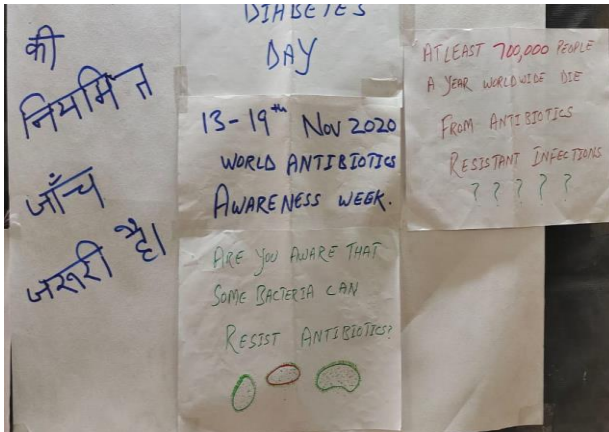 की
नियमित
जाँच
जरूरी है।
DIABETES
DAY
13-19th Nov 2020
WORLD ANTIBIOTICS
AWARENESS WEEK.
ARE YOU AWARE THAT
SOME BACTERIA CAN
RESIST ANTIBIOTICS?
ATLEAST 700,000 PEOPLE
A YEAR WORLDWIDE DIE
FROM ANTIBIOTICS
RESISTANT INFECTIONS
? ? ? ? ?